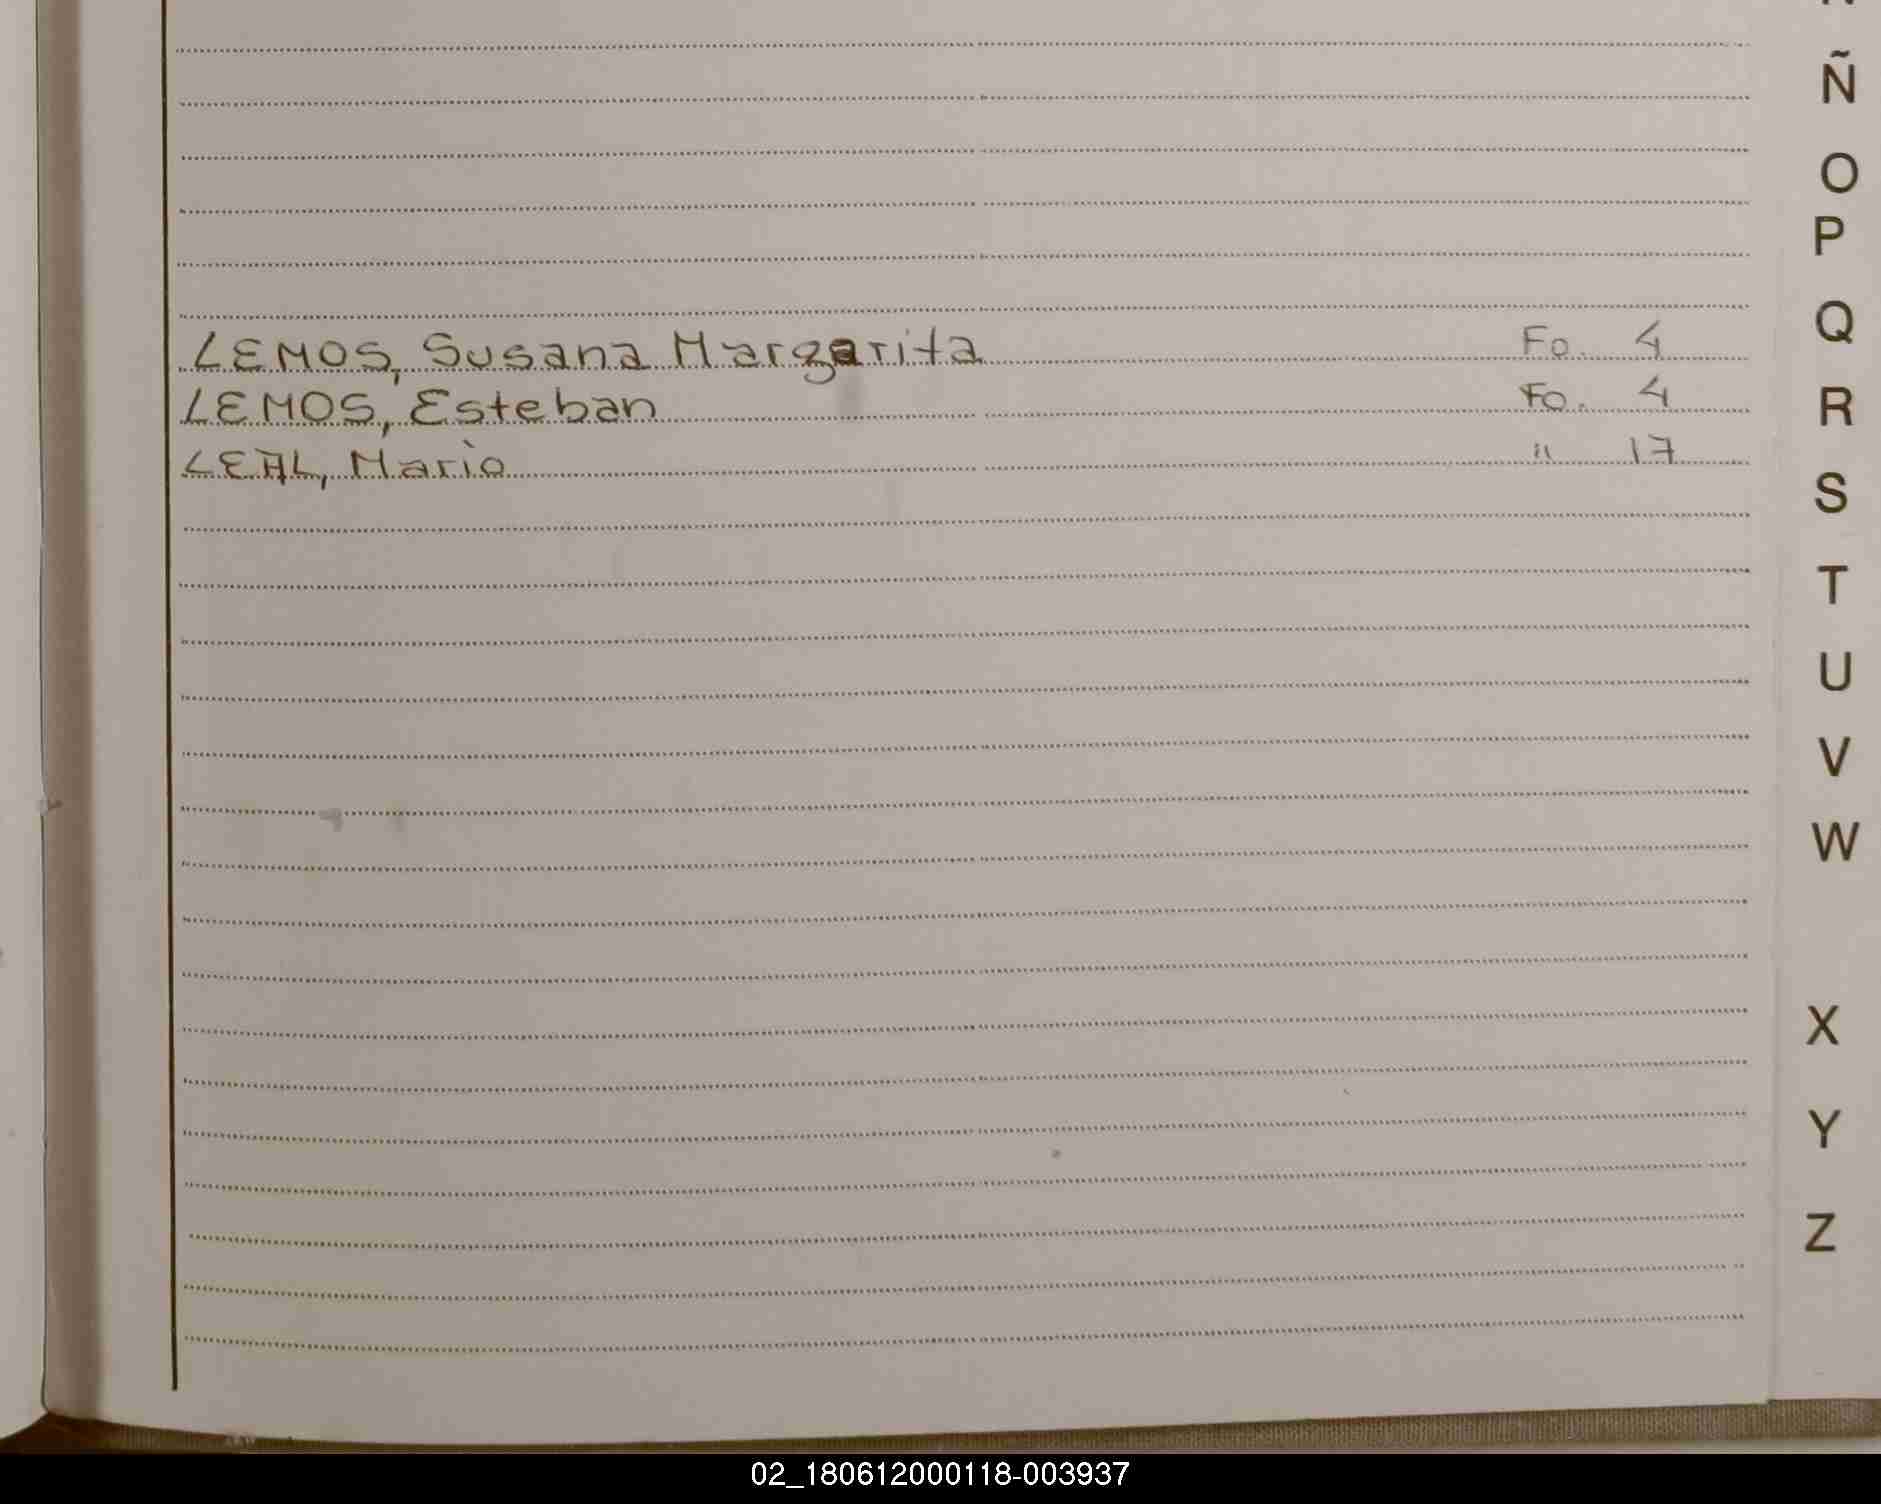 Ñ
O
P
Q
LEMOS, Susana Margarita Fo. 4
LEMOS, Esteban Fo. 4
LEAL, Mario " 17
R
S
T
U
V
W
X
Y
Z
02_180612000118-003937